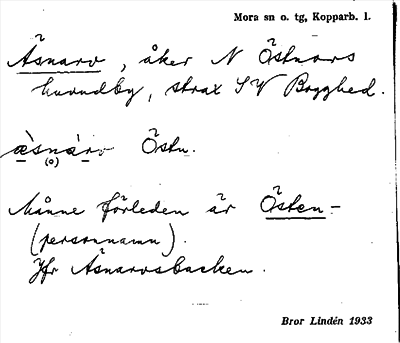 Mora sn o. tg, Kopparb. l.
Åsnarv, åker N Östnors
huvudby, strax SV Bygghed.
æ̀snàrv Östn.
(o)
Månne förleden är Östen-
(personnamn).
Jfr Åsnarvsbacken.
Bror Lindén 1933